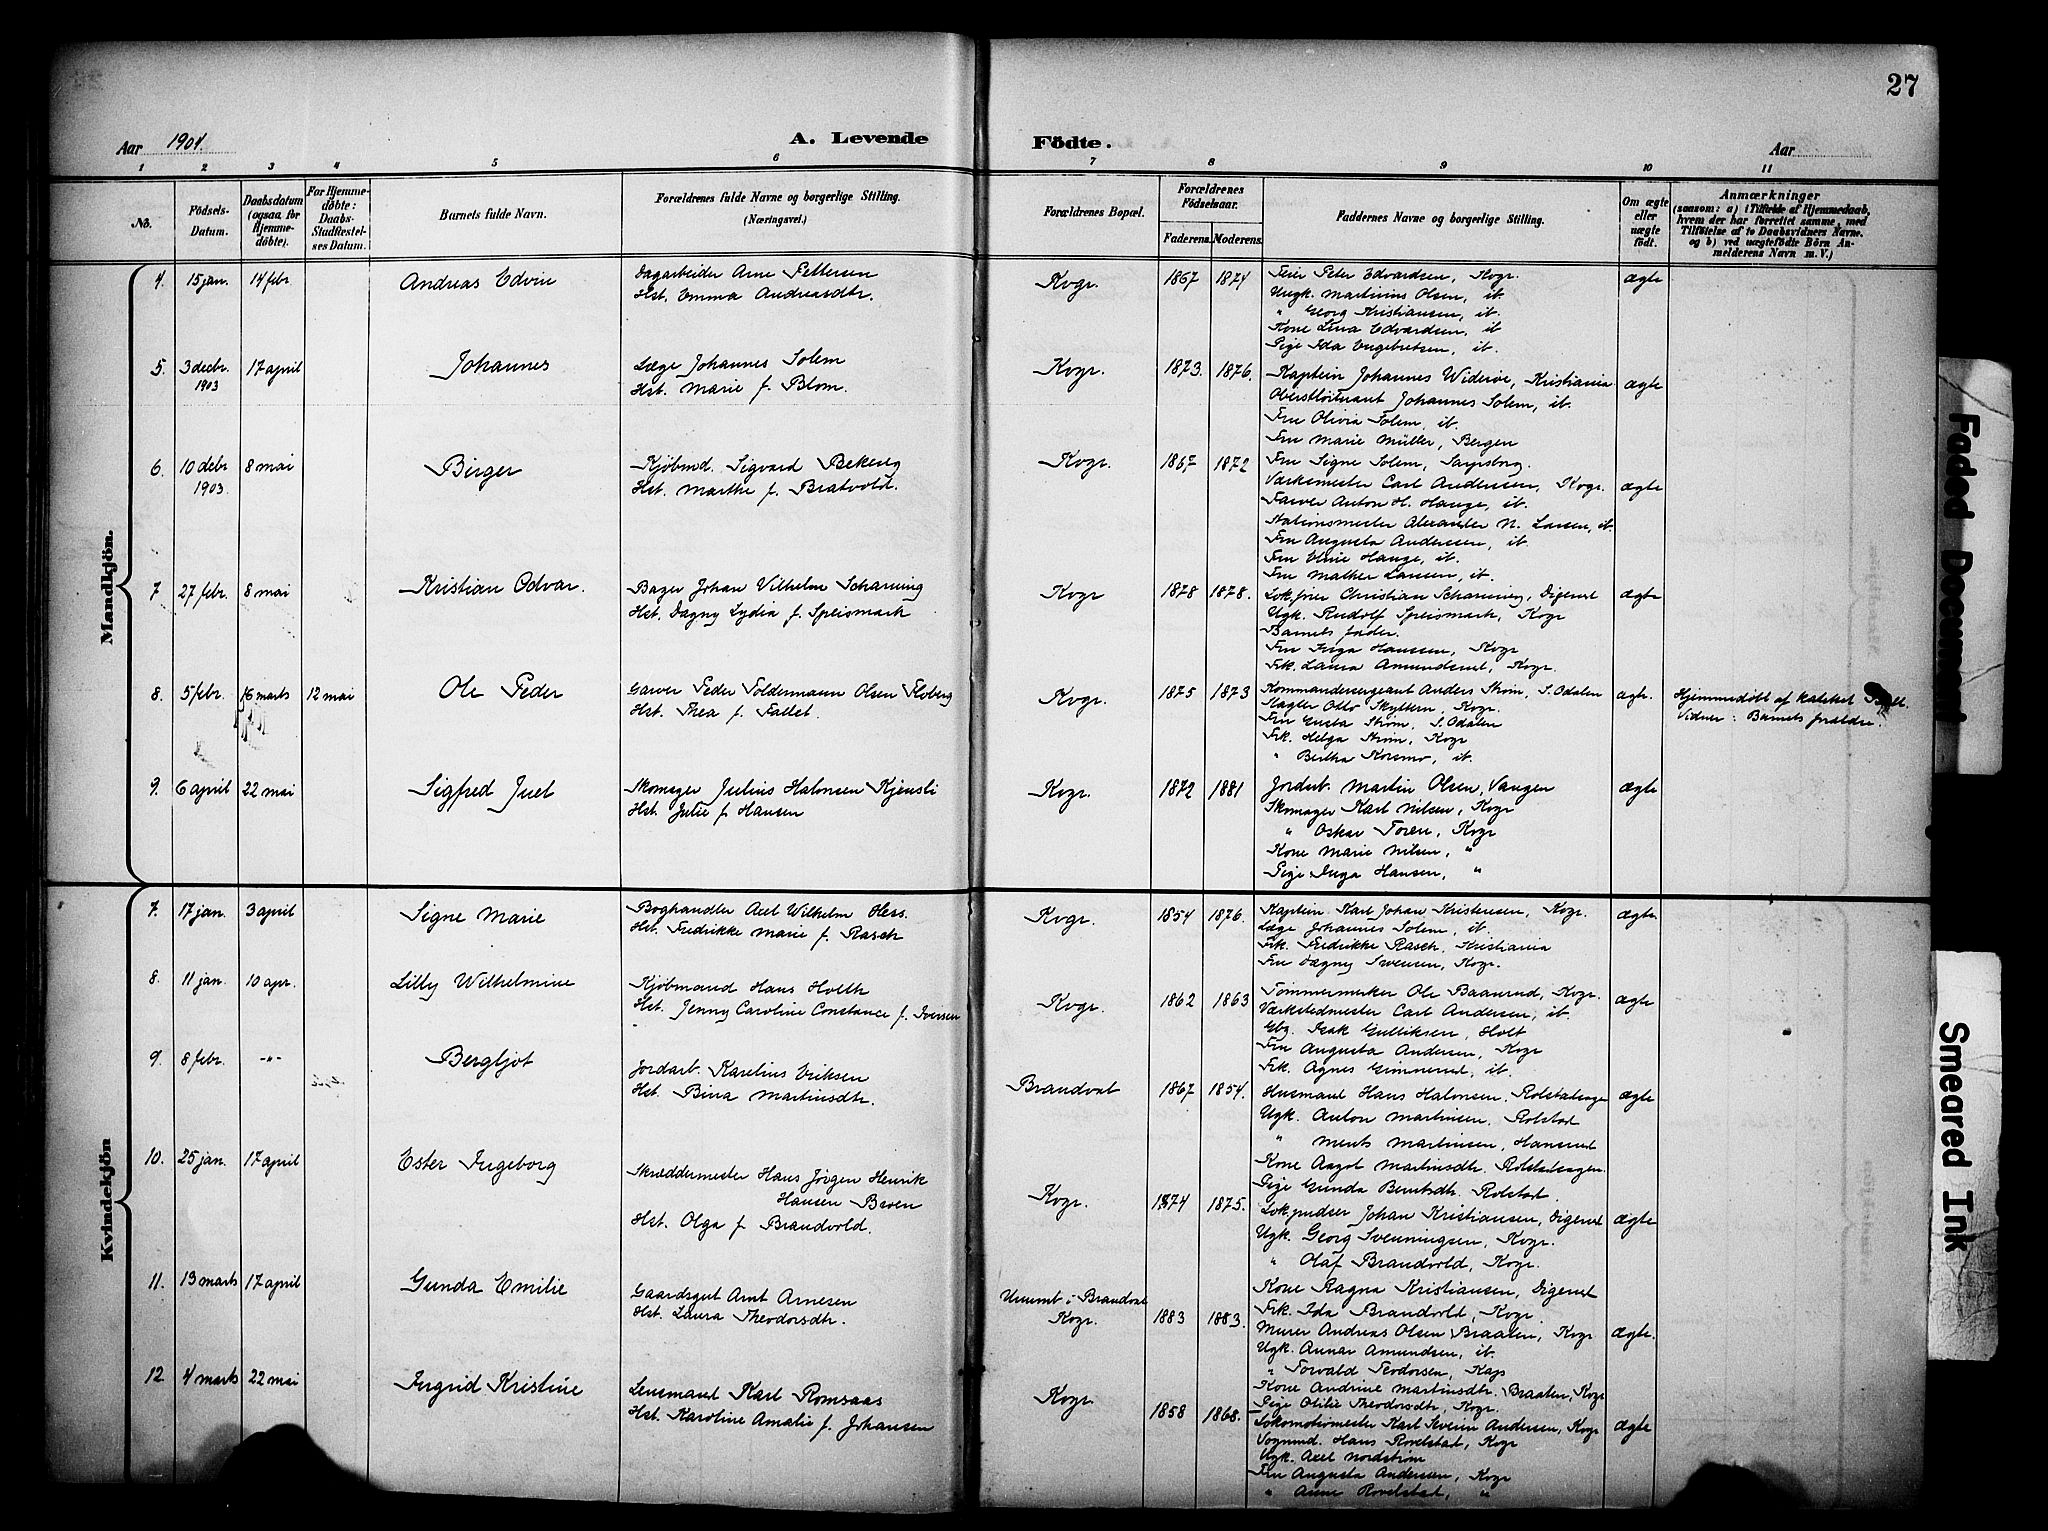 27
Aar 1904.
A. Levende
Födte.
Aar
1 2 3 4 5 6 7 8 9 10 11
No.
Födsels-
Datum.
Daabsdatum
(ogsaa for
Hjemme-
døbte).
For Hjemme-
døbte:
Daabs-
Stadfæstel-
ses Datum.
Barnets fulde Navn.
Forældrenes fulde Navne og borgerlige Stilling.
(Næringsvei.)
Forældrenes Bopæl.
Forældrenes
Födselsaar.
Faderens. Moderens.
Faddernes Navne og borgerlige Stilling.
Om ægte
eller
uægte
født.
Anmærkninger
(saasom: a) i Tilfælde af Hjemmedaab,
hvem der har forrettet samme, med
Tilföielse af to Daabsvidners Navne,
og b) ved uægtefödte Börn An-
melderens Navn m. V.)
Mandkjön.
4. 15 jan. 14 febr. Andreas Edvin
Dagarbeider Arne Pettersen
Hst. Emma Andreasdtr.
Kvgr. 1867 1874
Feier Peter Edvardsen, Kvgr.
Ungk. Martinius Olsen, it.
" Georg Kristiansen, it.
Kone Lina Edvardsen, it
Pige Ida Engebretsen, it.
ægte
5. 3 decbr. 1903 17 april Johannes
Læge Johannes Solem
Hst. Marie f. Blom.
Kvgr. 1873. 1876.
Kaptein Johannes Widerøe, Kristiania
Oberstløitnant Johannes Solem, it.
Fru Olivia Solem, it.
Fru Marie Müller, Bergen
Fru Signe Solem, Sarpsborg.
ægte
6. 10 debr 1903. 8 mai Birger
Kjøbmd. Sigvard Bekeng
Hst. Marthe f. Bratvold.
Kvgr. 1867 1872
Værksmester Carl Andersen, Kvgr.
Farver Anton H. Hauge, it.
Stationsmester Alexander N. Larsen, it.
Fru Augusta Andersen, it.
Fru Hauge, it.
Fru Larsen, it.
ægte
7 27 febr. 8 mai Kristian Odvar.
Bager Johan Vilhelm Scharning
Hst. Dagny Lydia f. Spreismark
Kvgr 1878 1878.
Lok.fører Christian Scharning, Digerud
Ugk. Rudolf Spreismark, Kvgr
Barnets fader.
Fru Inga Hanssen, Kvgr
Frk. Laura Amundsrud, Kvgr.
ægte
8. 5 febr. 16 marts 12 mai Ole Peder
Garver Peder Toldermann Olsen Floberg
Hst. Thea f. Fallet.
Kvgr. 1875 1873
Kommandersergeant Anders Strøm, S. Odalen
Otto Skyttern, Kvgr.
Fru Gusta Strøm, S. Odalen
Frk. Helga Strøm, Kvgr
" Bertha Koremo, it.
ægte.
Hjemmedøbt af kateket
Vidner: Barnets forældre.
9. 6 april 22 mai Sigfred Juel
Skomager Julius Halvorsen Kjensli
Hst. Julie f. Hansen
Kvgr. 1872 1881
Jordarb. Martin Olsen, Vangen
Skomager Karl Nilsen, Kvgr
" Oskar Toren, Kvgr
Kone Marie Nilsen, "
Pige Inga Hansen, "
ægte
Kvindekjön
7. 17 jan. 3 april Signe Marie
Boghandler Axel Wilhelm Hess.
Hst. Fredrikke Marie f. Rasch
Kvgr. 1854 1876.
Kaptein Karl Johan Kristensen, Kvgr.
Læge Johannes Solem, it.
Frk. Fredrikke Rasch, Kristiania
Fru Dagny Svensen, Kvgr.
ægte
8. 11 jan. 10 apr. Lilly Wilhelmine
Kjøbmand Hans Holth
Hst. Jenny Caroline Constance f. Iversen
Kvgr. 1862 1863
Tømmermerker Ole Baanrud, Kvgr.
Værkstedmester Carl Andersen, it.
Gbr. Isak Gulliksen, Holt
Fru Augusta Andersen, Kvgr
Frk. Agnes Gimnerud, it.
ægte
9. 8 febr. -"- Bergljot
Jordarb. Karelius Eriksen
Hst. Bina Martinsdtr.
Brandval 1867 1854.
Husmand Hans Halvorsen. Rolstadenge
Ugk. Anton Martinsen. Rolstad
" Ments Martinsen, Hansrud
Kone Aagot Martinsdtr. Rolstadengen.
Pige Gunda Berntsdtr. Rolstad.
ægte
10. 25 jan. 17 april Ester Ingeborg
Skræddermester Hans Jörgen Henrik
Hansen Broen
Hst. Olga f. Brandvold.
Kvgr. 1874 1875.
Lok.pudser Johan Kristiansen, Digerud
Ugk. Georg Svenningsen, Kvgr.
" Olaf Brandvold, Kvgr.
Kone Ragna Kristiansen, Digerud
Frk. Ida Brandvold, Kvgr.
ægte
11. 13 marts 17 april Gunda Emilie
Gaardsgut Arnt Arnesen
Hst. Laura Theodorsdtr.
i Brandval
Kvgr. 1883 1883.
Murer Andreas Olsen Braaten, Kvgr
Ugk. Gunnar Amundsen, it.
" Torvald Teodorsen, Kvgr
Kone Andrine Martinsdtr. Braaten, Kvgr
Pige Otilie Theodorsdtr, Kvgr.
ægte.
12 4 marts 22 mai Ingrid Kristine
Lensmand Karl Romsaas
Hst. Karoline Amalie f. Johansen
Kvgr. 1858 1868.
Lokomotivmester Karl Severin Andersen, Kvgr
Vognmd. Hans Rovelstad, Kvgr
Ugk. Axel Nordstrøm
Fru Augusta Andersen, Kvgr
" Anne Rovelstad, "
ægte
Faded Document
Smeared Ink